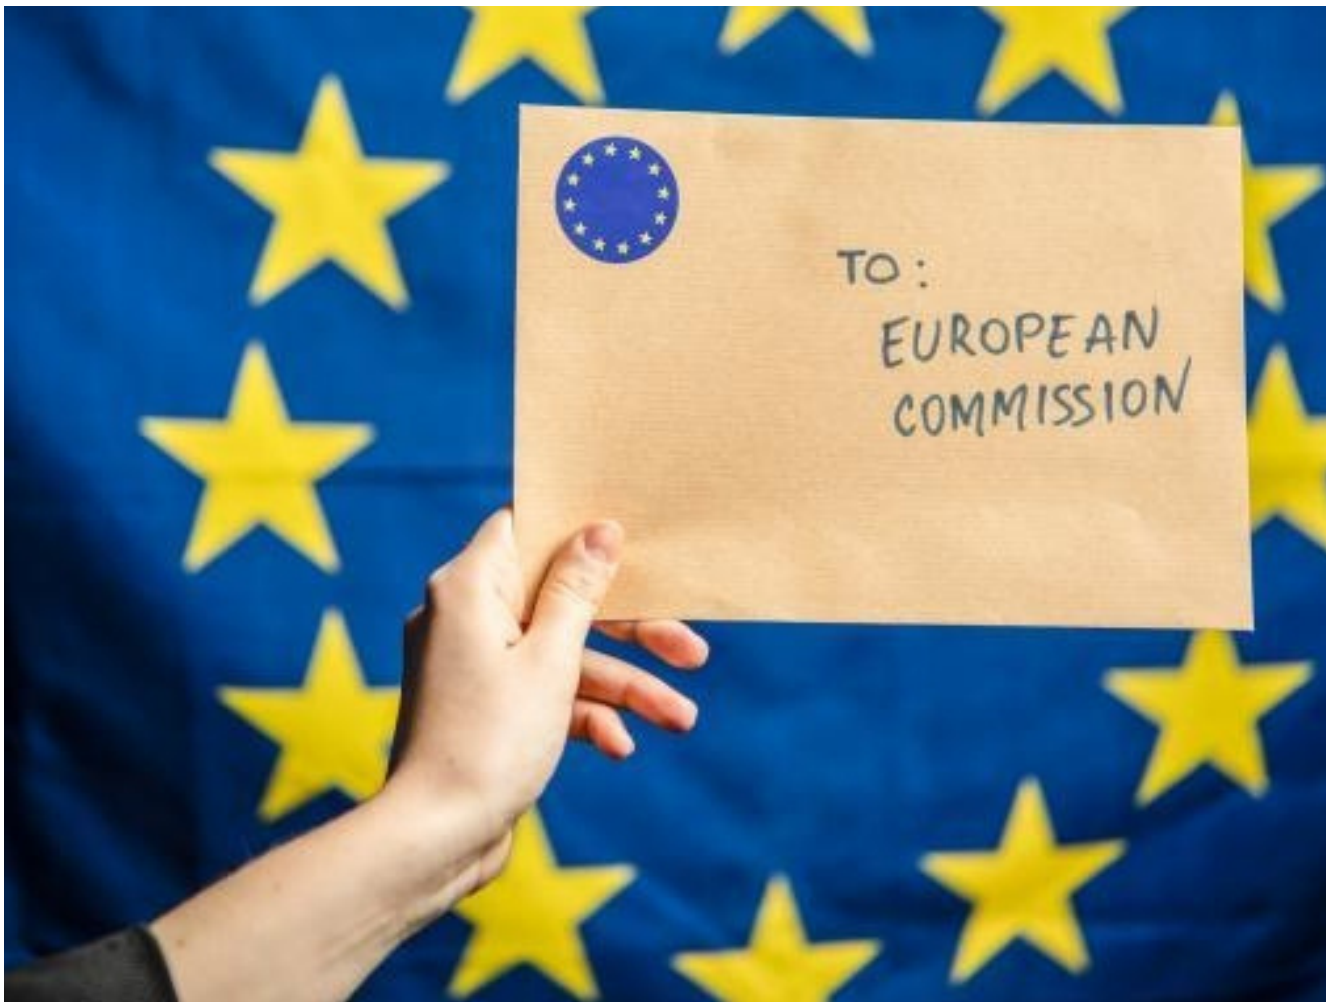 TO:
EUROPEAN
COMMISSION